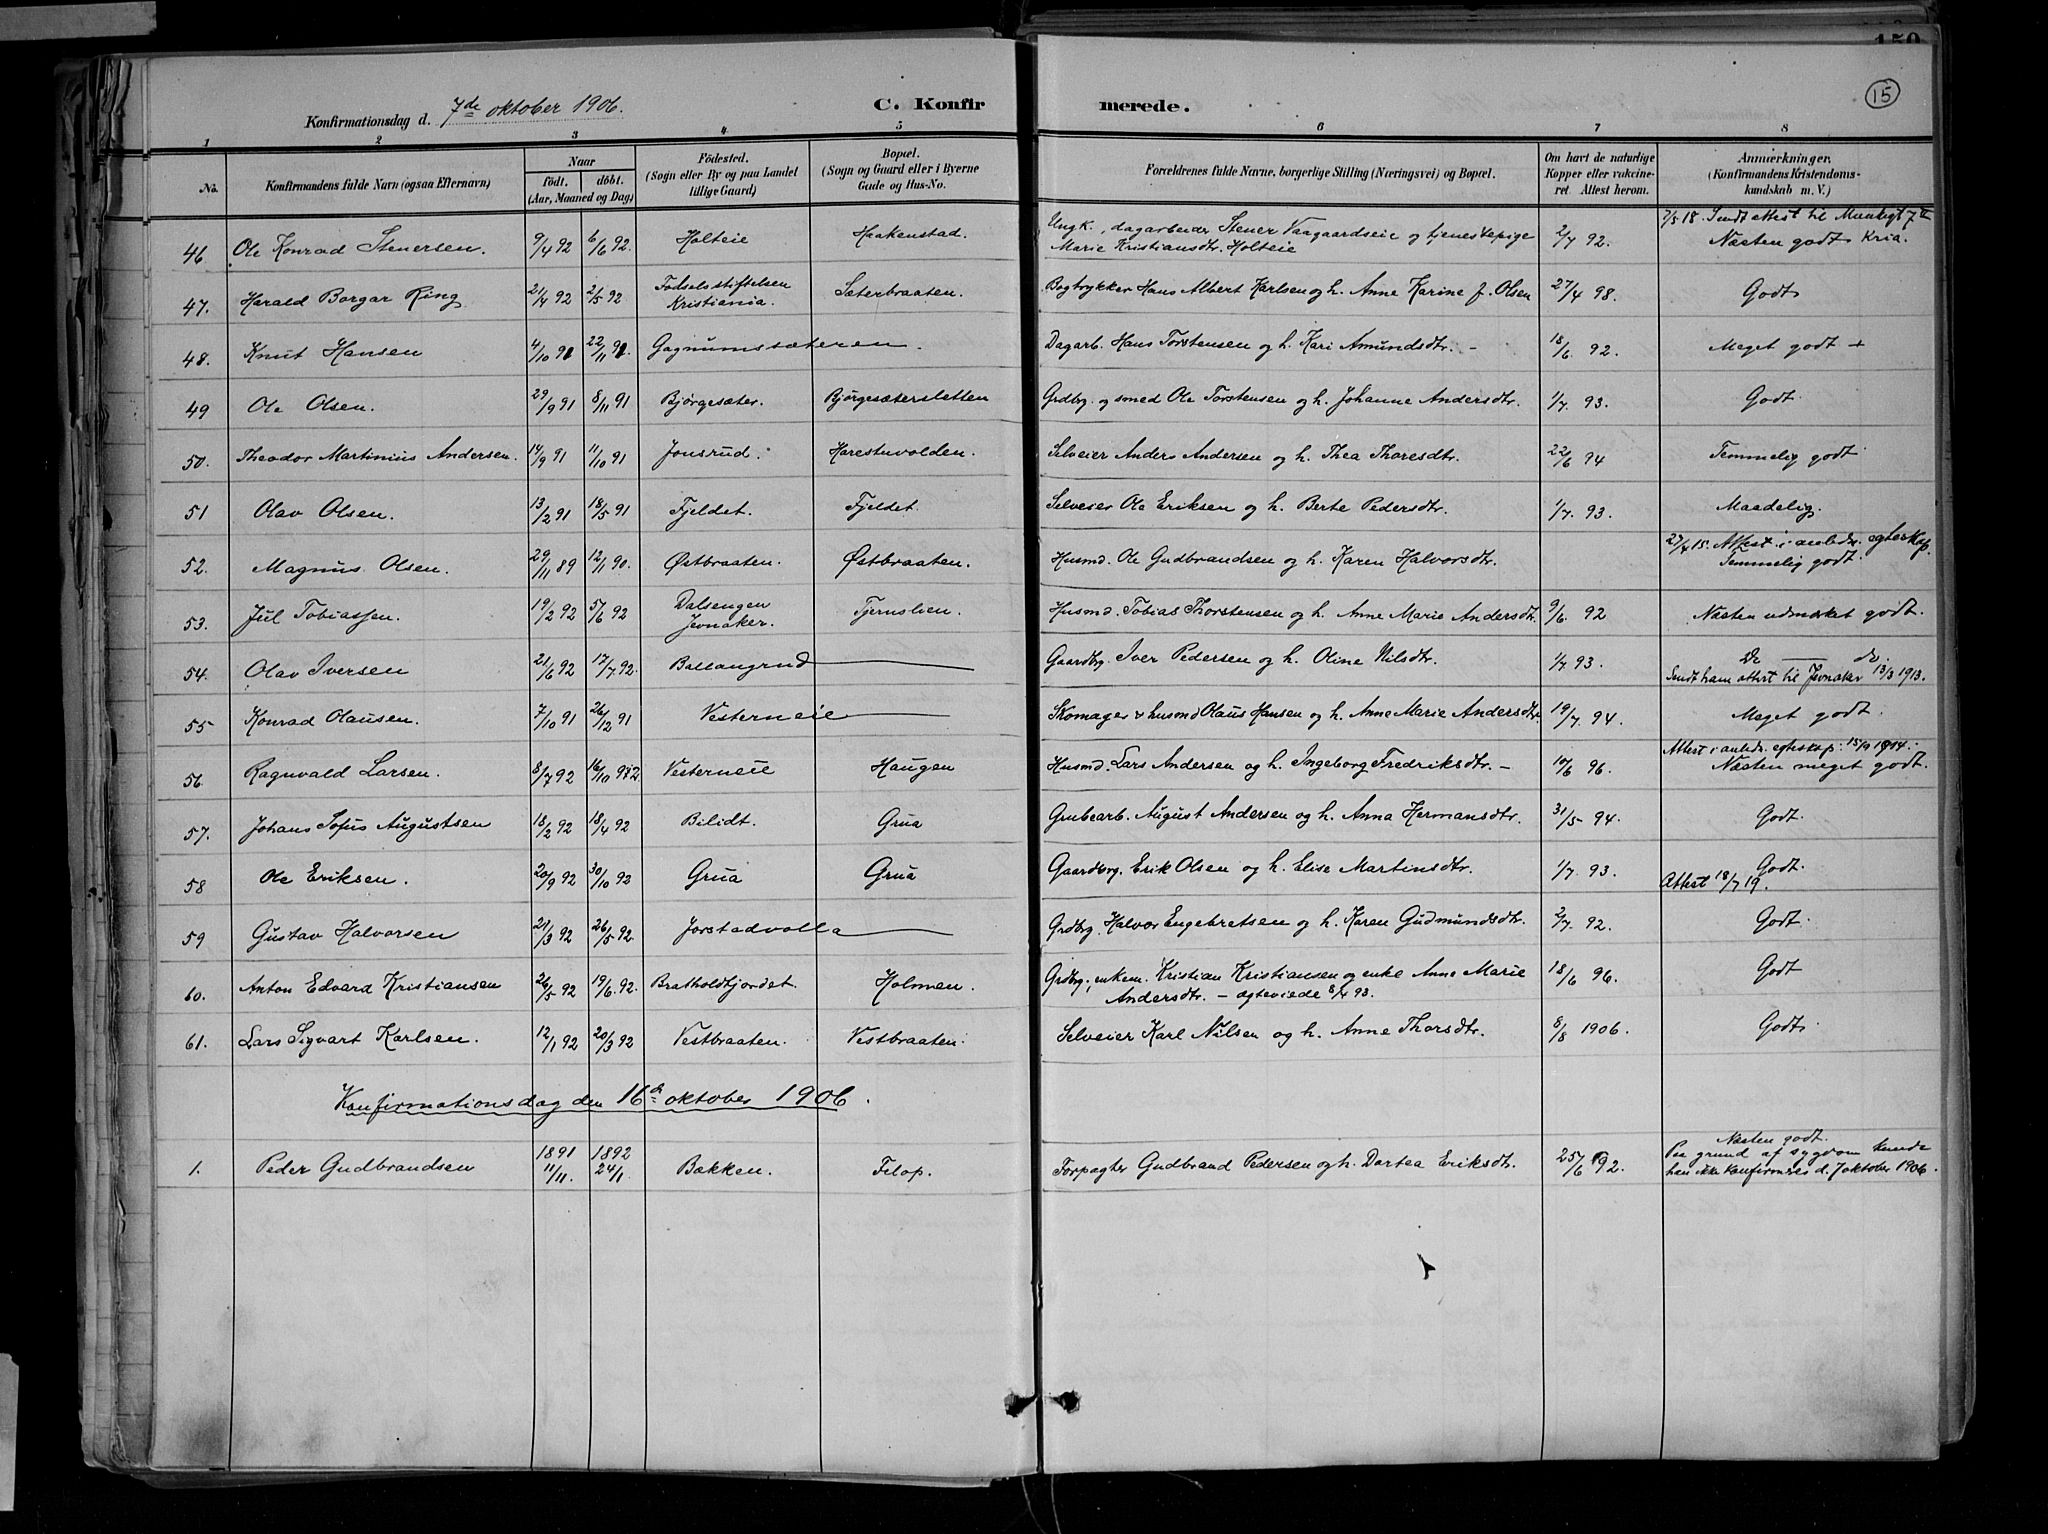 150
15
Konfirmationsdag d. 7de oktober 1906.
C. Konfir merede.
1 2 3 4 5 6 7 8
No. Konfirmandens fulde Navn (ogsaa Efternavn) Naar födt. döbt. (Aar, Maaned og Dag) Födested. (Sogn eller By og paa Landet tillige Gaard) Bopæl. (Sogn og Gaard eller i Byerne Gade og Hus-No. Forældrenes fulde Navne, borgerlige Stilling (Næringsvei) og Bopæl. Om havt de naturlige Kopper eller vakcineret Attest herom. Anmærkninger. (Konfirmandens Kristendomskundskab m. V.)
46. Ole Konrad Stenersen. 9/4 92 6/6 92. Holteie Haakenstad. Ungk., dagarbeider Stener Vaagaardseie og tjenestepige Marie Kristiansdtr. Holteie 2/7 92. 7/5 18. Sendt attest til Næsten godt Kria.
47. Harald Borgar Ring 21/4 92 2/5 92 Fødselsstiftelsen Kristiania. Sæterbraaten. Bogtrykker Hans Albert Karlsen og h. Anne Karine f. Olsen 27/4 98. Godt
48. Knut Hansen 4/10 91 22/11 91. Gagnumsæteren. Dagarb. Hans Torstensen og h. Kari Amundsdtr. - 18/6 92. Meget godt +
49 Ole Olsen. 29/9 91 8/11 91 Bjørgesæter. Bjørgesætersletten Grdbrg. og smed Ole Torstensen og h. Johanne Andersdtr. 1/7. 93. Godt.
50. Theodor Martinius Andersen. 14/9 91 11/10 91 Jonsrud. Harestuvolden. Selveier Anders Andersen og h. Thea Thoresdtr. 22/6 94 Temmelig godt.
51 Olav Olsen. 13/2 91 18/5 91 Fjeldet. Fjeldet. Selveier Ole Eriksen og h. Berte Pedersdtr. 1/7. 93. Maadelig.
52. Magnus Olsen. 29/11 89 12/1 90. Østbraaten. Østbraaten. Husmd. Ole Gudbrandsen og h. Karen Halvorsdtr. 27/4 15. Attest i anledn. egteskap. Temmelig godt.
53. Jul Tobiassen. 19/2 92 5/6 92 Dalsengen Jevnaker. Tjernslien. Husmd. Tobias Thorstensen og h. Anne Marie Andersdtr. 9/6. 92 Næsten udmærket godt.
54. Olav Iversen 21/6 92 17/7 92. Ballangrud Gaardbrg. Iver Pedersen og h. Oline Nilsdtr. 1/7 93. Do — do. Sendt ham attest til Jevnaker 13/3 1913.
55 Konrad Olausen. 7/10 91 26/12 91 Vesterneie Skomager + husmd Olaus Hansen og h. Anne Marie Andersdtr 19/7. 94. Meget godt.
56. Ragnvald Larsen. 8/7 92 16/10 92 Vesterneie Haugen Husmd. Lars Andersen og h. Ingeborg Fredriksdtr. - 10/6 96. Attest i anledn. egteskap: 15/9 1914. Næsten meget godt.
57. Johans Sofus Augustsen 18/2 92 18/4 92 Bilidt. Grua Grubearb. August Andersen og h. Anna Hermansdtr. 31/5 94. Godt.
58 Ole Eriksen. 20/9 92 30/10 92 Grua Grua Gaardbrg. Erik Olsen og h. Elise Martinsdtr. 1/7. 93. Godt. Attest 18/7 19.
59 Gustav Halvorsen 21/3 92 26/5 92. Jorstadvolla Grdbrg. Halvor Engebretsen og h. Karen Gudmundsdtr. 2/7. 92. Godt
60. Anton Edvard Kristiansen 26/5 92 19/6 92. Bratholdtjordet. Holmen. Grdbrg., enkem. Kristian Kristiansen og enke Anne Marie Andersdtr. - ægteviede 8/4 93. 18/6 96. Godt
61. Lars Sigvart Karlsen. 12/1 92 20/3 92 Vestbraaten. Vestbraaten. Selveier Karl Nilsen og h. Anne Thorsdtr. 8/8 1906. Godt
Konfirmationsdag den 16de oktober 1906.
1. Peder Gudbrandsen 1891 11/11. 1892 24/1 Bækken. Filop. Forpagter Gudbrand Pedersen og h. Dortea Eriksdtr. 25/6 92. Næsten godt. Paa grund af sygdom kunde han ikke konfirmeres d. 7 oktober 1906.